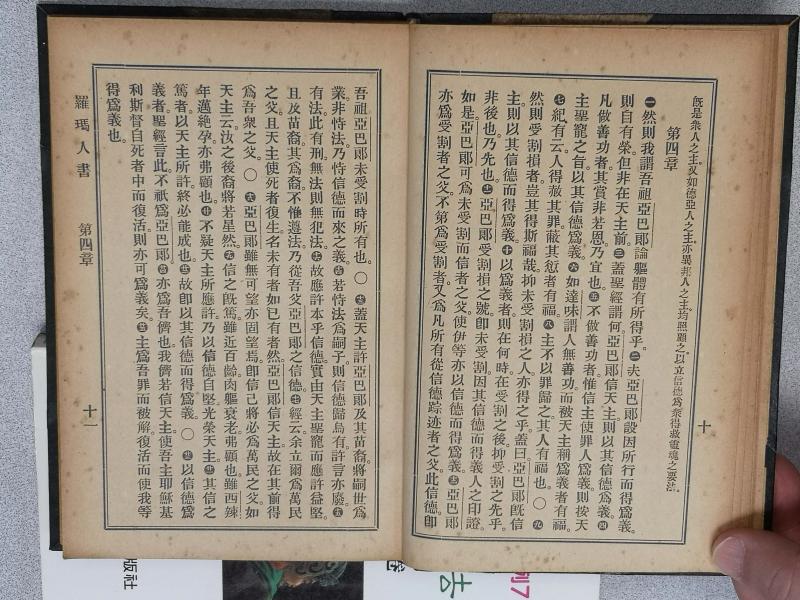 既是衆人之主又如德亞人之主亦異邦人之主均照顧之以立信德爲衆得救靈魂之要法
第四章
一然則我謂吾祖亞巴郎論軀體有所得乎。二夫亞巴郎設因所行而得爲義。
則自有榮但非在天主前。三蓋聖經謂何亞巴郎信天主則以其信德爲義。四
凡做善功者其賞非若恩乃宜也。五不做善功者惟信主使罪人爲義則按天
主聖寵之旨以其信德爲義。六如達味謂人無善功而被天主稱爲義者有福。
七紀有云人得赦其罪蔽其愆者有福。八主不以罪歸之其人有福也。〇九
然則受割損者豈其得斯福哉抑未受割損之人亦得之乎蓋曰亞巴郎旣信
主則以其信德而得爲義。十以爲義者則在何時在受割之後抑受割之先乎。
非後也乃先也。十一亞巴郎受割損之號卽未受割因其信德而得義人之印證。
如是亞巴郎可爲未受割而信者之父使伊等亦以信德而得爲義。十二亞巴郎
亦爲受割者之父不第爲受割者又爲凡所有從信德踪迹者之父此信德卽
十
吾祖亞巴郎未受割時所有也。〇十三蓋天主許亞巴郎及其苗裔將嗣世爲
業非恃法乃恃信德而來之義。十四若恃法爲嗣子則信德歸烏有許言亦廢。十五
有法此有刑無法則無犯法。十六故應許本乎信德實由天主聖寵而應許益堅。
且及苗裔其爲裔不惟遵法乃從吾父亞巴郎之信德。十七經云余立爾爲萬民
之父且天主使死者復生名未有者如已有者然亞巴郎信天主故在其前得
爲吾衆之父。〇十八亞巴郎雖無可望亦固望焉卽信己將必爲萬民之父如
天主云汝之後裔將若星然。十九信之旣篤雖近百齡肉軀衰老弗顧也雖西辣
年邁絕孕亦弗顧也。二十不疑天主所應許乃以信德自堅光榮天主。二十一其信之
篤者以天主所許終必能成也。二十二故卽以其信德而得爲義。〇二十三以信德爲
義者聖經言此不祇爲亞巴郎。二十四亦爲吾儕也我儕若信天主使吾主耶穌基
利斯督自死者中而復活則亦可爲義矣。二十五主爲吾罪而被解復活而使我等
得爲義也。
羅瑪人書 第四章
十一
版社
列7
法